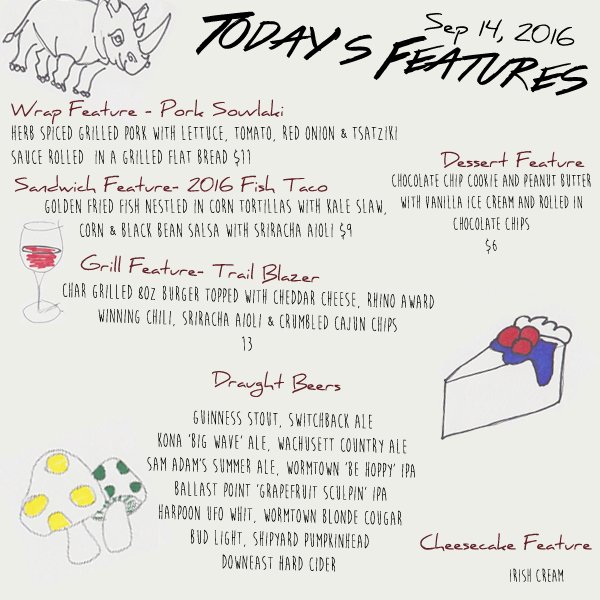 Sep 14, 2016
TODAY'S FEATURES
Wrap Feature - Pork Souvlaki
HERB SPICED GRILLED PORK WITH LETTUCE, TOMATO, RED ONION & TSATZIKI
SAUCE ROLLED IN A GRILLED FLAT BREAD $11
Sandwich Feature- 2016 Fish Taco
GOLDEN FRIED FISH NESTLED IN CORN TORTILLAS WITH KALE SLAW,
CORN & BLACK BEAN SALSA WITH SRIRACHA AIOLI $9
Dessert Feature
CHOCOLATE CHIP COOKIE AND PEANUT BUTTER
WITH VANILLA ICE CREAM AND ROLLED IN
CHOCOLATE CHIPS
$6
Grill Feature- Trail Blazer
CHAR GRILLED 8OZ BURGER TOPPED WITH CHEDDAR CHEESE, RHINO AWARD
WINNING CHILI, SRIRACHA AIOLI & CRUMBLED CAJUN CHIPS
13
Draught Beers
GUINNESS STOUT, SWITCHBACK ALE
KONA 'BIG WAVE' ALE, WACHUSETT COUNTRY ALE
SAM ADAM'S SUMMER ALE, WORMTOWN 'BE HOPPY' IPA
BALLAST POINT 'GRAPEFRUIT SCULPIN' IPA
HARPOON UFO WHIT, WORMTOWN BLONDE COUGAR
BUD LIGHT, SHIPYARD PUMPKINHEAD
DOWNEAST HARD CIDER
Cheesecake Feature
IRISH CREAM